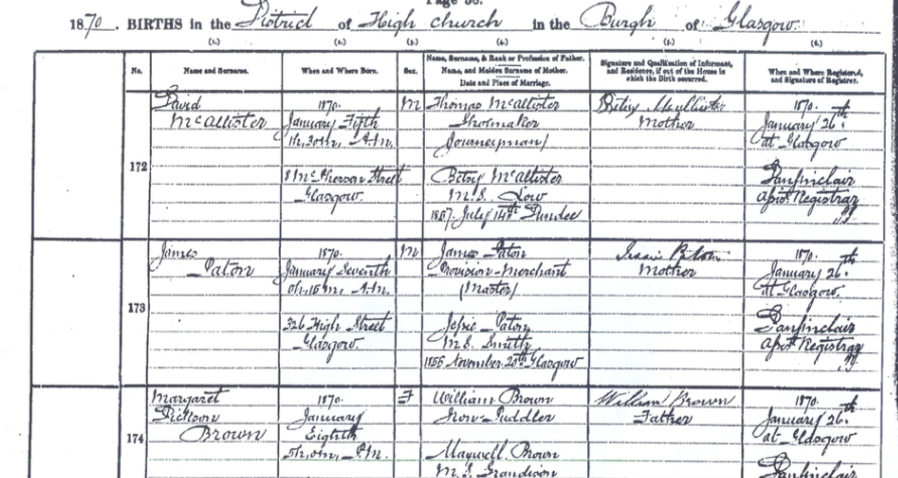 Page 58.
1870. BIRTHS in the District of High church in the Burgh of Glasgow.
(1.) (2.) (3.) (4.) (5.) (6.)
No. Name and Surname. When and Where Born. Sex. Name, Surname, & Rank or Profession of Father. Name, and Maiden Surname of Mother. Date and Place of Marriage. Signature and Qualification of Informant, and Residence, if out of the House in which the Birth occurred. When and Where Registered, and Signature of Registrar.
172
David
McAllister
1870.
January Fifth
1h. 30m. A.M.
8 McPherson Street
Glasgow.
M
Thomas McAllister
Shoemaker
(Journeyman)
Betsy McAllister
M.S. Low
1867. July 14th Dundee
Betsy
Mother
1870.
January 26th.
at Glasgow
Registrar
173
James
Paton
1870.
January Seventh
0h. 15m. A.M.
326 High Street
Glasgow.
M
James Paton
Provision-Merchant
(Master)
Jessie Paton
M.S. Smith
November 20th Glasgow
Mother
1870.
January 26th.
at Glasgow.
Registrar
174
Margaret
Dickson
Brown
1870.
January
Eighth
5h. 0m. P.M.
F
William Brown
Iron-Puddler
Maxwell Brown
M.S. Grandison
William Brown
Father
1870.
January 26th.
at Glasgow